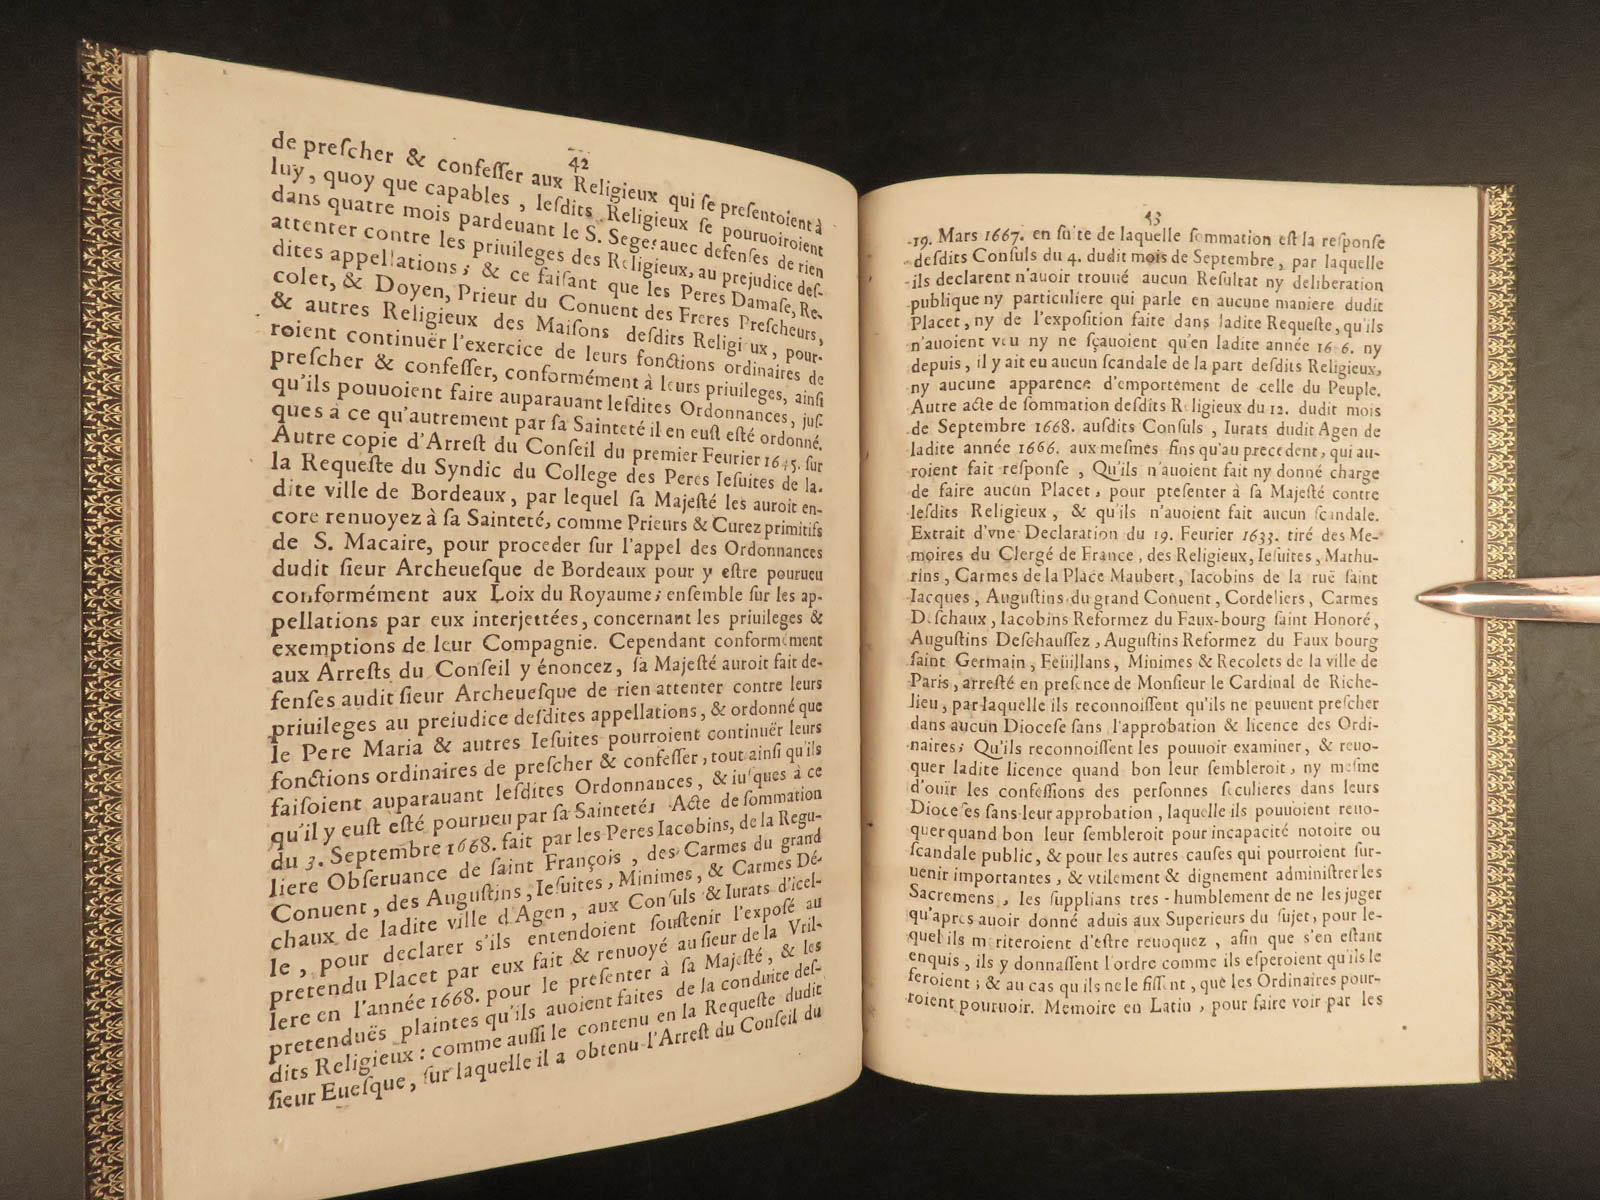 42
de preſcher & confeſſer aux Religieux qui ſe preſentoient à
luy, quoy que capables, leſdits Religieux ſe pouruoiroient
dans quatre mois pardeuant le S. Siege: auec defenſes de rien
attenter contre les priuileges des Religieux, au prejudice deſ-
dites appellations; & ce faiſant que les Peres Damaſe, Re-
colet, & Doyen, Prieur du Conuent des Freres Preſcheurs,
& autres Religieux des Maiſons deſdits Religi ux, pour-
roient continuër l'exercice de leurs fonctions ordinaires de
preſcher & confeſſer, conformément à leurs priuileges, ainſi
qu'ils pouuoient faire auparauant leſdites Ordonnances, juſ-
ques à ce qu'autrement par ſa Sainteté il en euſt eſté ordonné.
Autre copie d'Arreſt du Conſeil du premier Feurier 1645. ſur
la Requeſte du Syndic du College des Peres Ieſuites de la-
dite ville de Bordeaux, par lequel ſa Majeſté les auroit en-
core renuoyez à ſa Sainteté, comme Prieurs & Curez primitifs
de S. Macaire, pour proceder ſur l'appel des Ordonnances
dudit ſieur Archeueſque de Bordeaux pour y eſtre pourueu
conformément aux Loix du Royaume; enſemble ſur les ap-
pellations par eux interjettées, concernant les priuileges &
exemptions de leur Compagnie. Cependant conformément
aux Arreſts du Conſeil y énoncez, ſa Majeſté auroit fait de-
fenſes audit ſieur Archeueſque de rien attenter contre leurs
priuileges au preiudice deſdites appellations, & ordonné que
le Pere Maria & autres Ieſuites pourroient continuër leurs
fonctions ordinaires de preſcher & confeſſer, tout ainſi qu'ils
faiſoient auparauant leſdites Ordonnances, & iuſques à ce
qu'il y euſt eſté pourueu par ſa Sainteté: Acte de ſommation
du 3. Septembre 1668. fait par les Peres Iacobins, de la Regu-
liere Obſeruance de ſaint François, des Carmes du grand
Conuent, des Auguſtins, Ieſuites, Minimes, & Carmes Dé-
chaux de ladite ville d'Agen, aux Conſuls & Iurats d'icel-
le, pour declarer s'ils entendoient ſouſtenir l'expoſé au
pretendu Placet par eux fait & renuoyé au ſieur de la Vril-
lere en l'année 1668. pour le preſenter à ſa Majeſté, & les
pretenduës plaintes qu'ils auoient faites de la conduite deſ-
dits Religieux: comme auſſi le contenu en la Requeſte dudit
ſieur Eueſque, ſur laquelle il a obtenu l'Arreſt du Conſeil du
43
19. Mars 1667. en ſuite de laquelle ſommation eſt la reſponſe
deſdits Conſuls du 4. dudit mois de Septembre, par laquelle
ils declarent n'auoir trouué aucun Reſultat ny deliberation
publique ny particuliere qui parle en aucune maniere dudit
Placet, ny de l'expoſition faite dans ladite Requeſte, qu'ils
n'auoient veu ny ne ſçauoient qu'en ladite année ny
depuis, il y ait eu aucun ſcandale de la part deſdits Religieux,
ny aucune apparence d'emportement de celle du Peuple.
Autre acte de ſommation deſdits R ligieux du 12. dudit mois
de Septembre 1668. auſdits Conſuls, Iurats dudit Agen de
ladite année 1666. aux meſmes fins qu'au precedent, qui au-
roient fait reſponſe, Qu'ils n'auoient fait ny donné charge
de faire aucun Placet, pour preſenter à ſa Majeſté contre
leſdits Religieux, & qu'ils n'auoient fait aucun ſcandale.
Extrait d'vne Declaration du 19. Feurier 1633. tiré des Me-
moires du Clergé de France, des Religieux, Ieſuites, Mathu-
rins, Carmes de la Place Maubert, Iacobins de la ruë ſaint
Iacques, Auguſtins du grand Conuent, Cordeliers, Carmes
D ſchaux, Iacobins Reformez du Faux-bourg ſaint Honoré,
Auguſtins Deſchauſſez, Auguſtins Reformez du Faux bourg
ſaint Germain, Feüillans, Minimes & Recolets de la ville de
Paris, arreſté en preſence de Monſieur le Cardinal de Riche-
lieu, par laquelle ils reconnoiſſent qu'ils ne peuuent preſcher
dans aucun Dioceſe ſans l'approbation & licence des Ordi-
naires; Qu'ils reconnoiſſent les pouuoir examiner, & reuo-
quer ladite licence quand bon leur ſembleroit, ny meſme
d'ouïr les confeſſions des perſonnes ſeculieres dans leurs
Dioceſes ſans leur approbation, laquelle ils pouuoient reuo-
quer quand bon leur ſembleroit pour incapacité notoire ou
ſcandale public, & pour les autres cauſes qui pourroient ſur-
uenir importantes, & vtilement & dignement adminiſtrer les
Sacremens, les ſupplians tres-humblement de ne les juger
qu'apres auoir donné aduis aux Superieurs du ſujet, pour le-
quel ils m riteroient d'eſtre reuoquez, afin que s'en eſtant
enquis, ils y donnaſſent l'ordre comme ils eſperoient qu'ils le
feroient; & au cas qu'ils ne le fiſſent, que les Ordinaires pour-
roient pouruoir. Memoire en Latin, pour faire voir par les